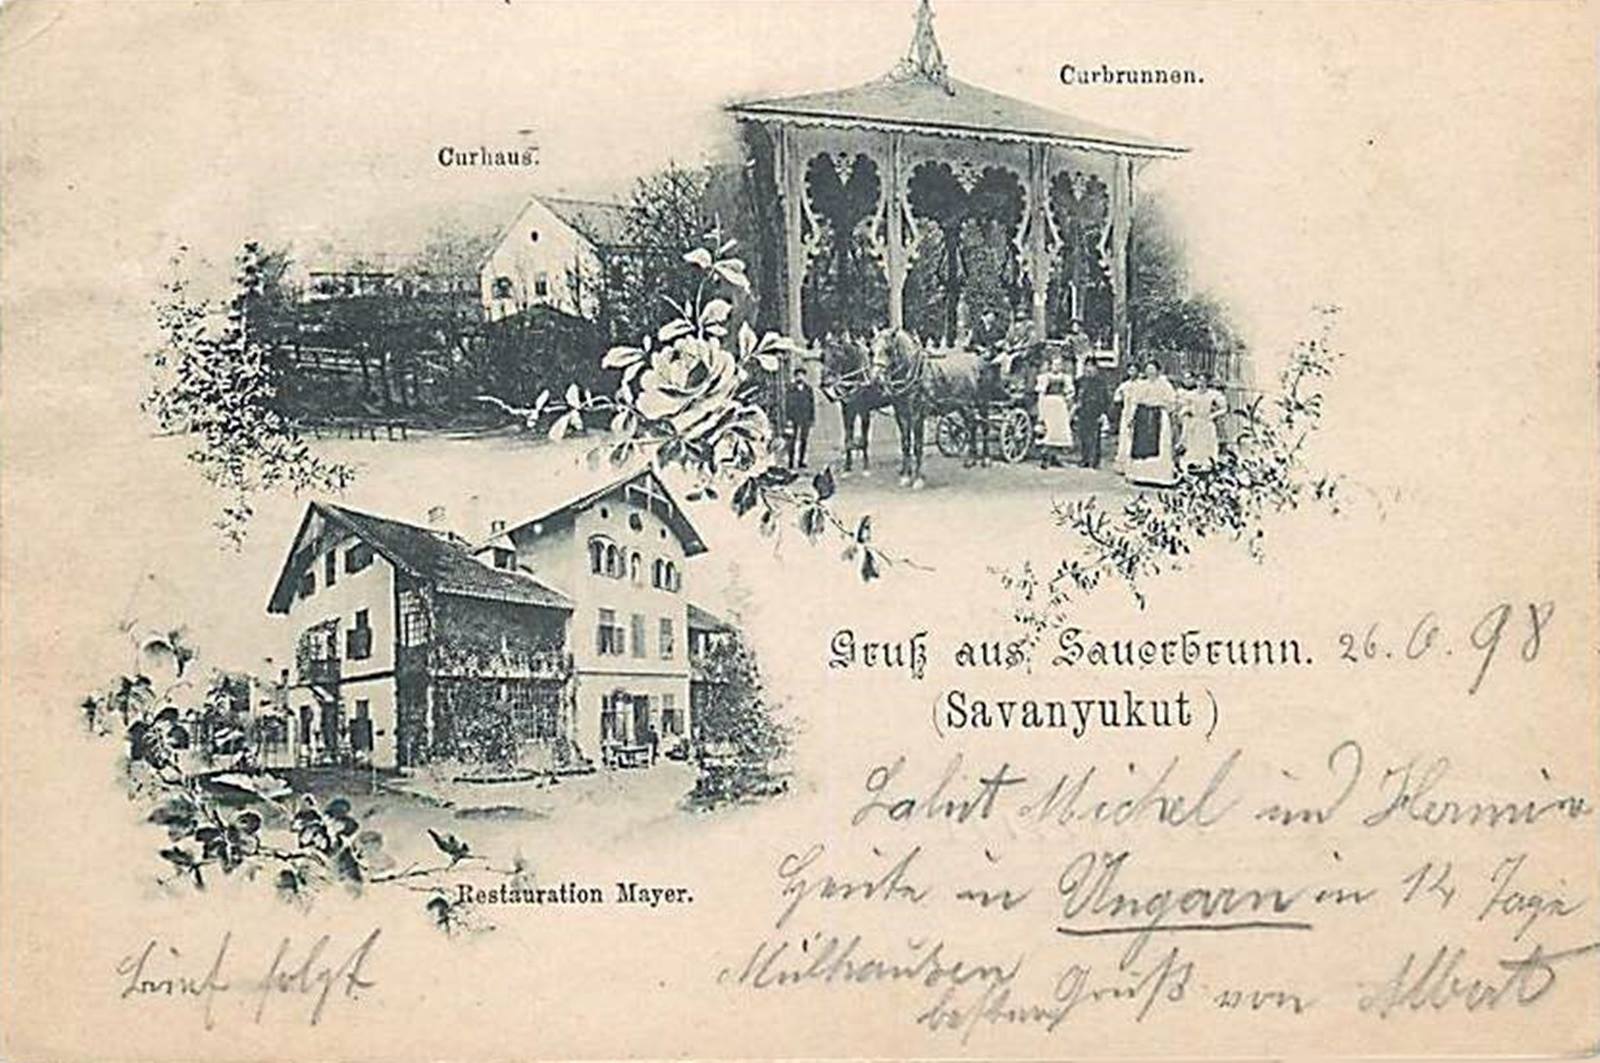 Curbrunnen.
Curhaus.
Gruß aus Sauerbrunn. 26. 6. 98
(Savanyukut)
Michel und Hermin
Heute in Ungarn in 14 Tage
Restauration Mayer.
Brief folgt
Mülhausen
besten Gruß von Albert